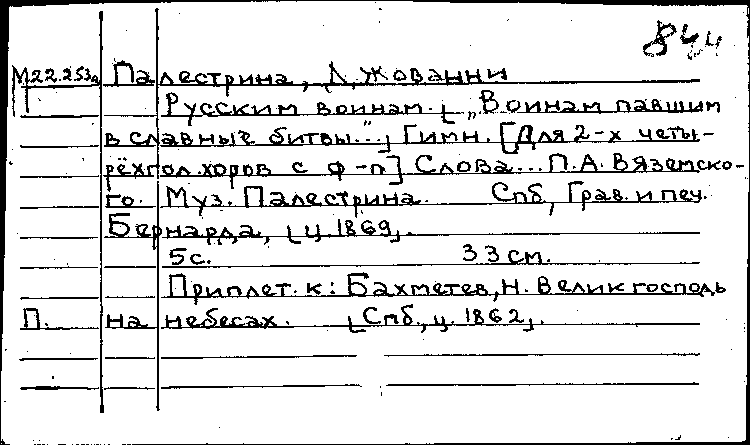 844
М22.253а Палестрина, Д. Жованни
Русским воинам. [„Воинам павшим
в славные битвы..."] Гимн. [Для 2-х четы-
рёхгол. хоров с ф-п] Слова... П.А. Вяземско-
го. Муз. Палестрина. Спб, Грав. и печ.
Бернарда, [ц. 1869].
5 с. 33 см.
Приплет. к: Бахметев, Н. Велик господь
П. на небесах. [Спб., ц. 1862].